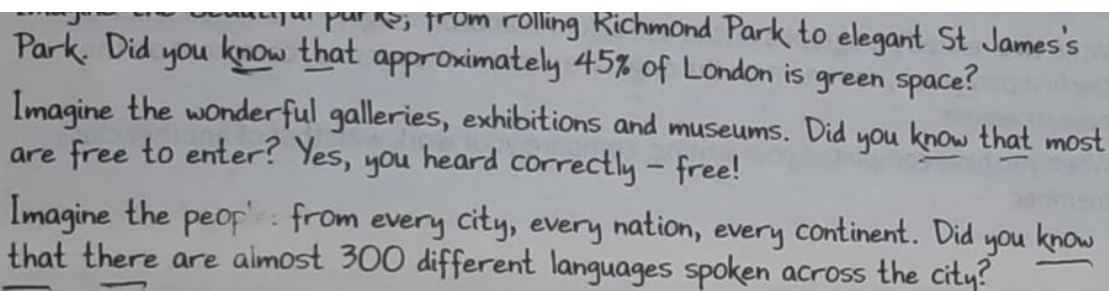 Imagine the beautiful parks, from rolling Richmond Park to elegant St James's
Park. Did you know that approximately 45% of London is green space?
Imagine the wonderful galleries, exhibitions and museums. Did you know that most
are free to enter? Yes, you heard correctly – free!
Imagine the : from every city, every nation, every continent. Did you know
that there are almost 300 different languages spoken across the city?